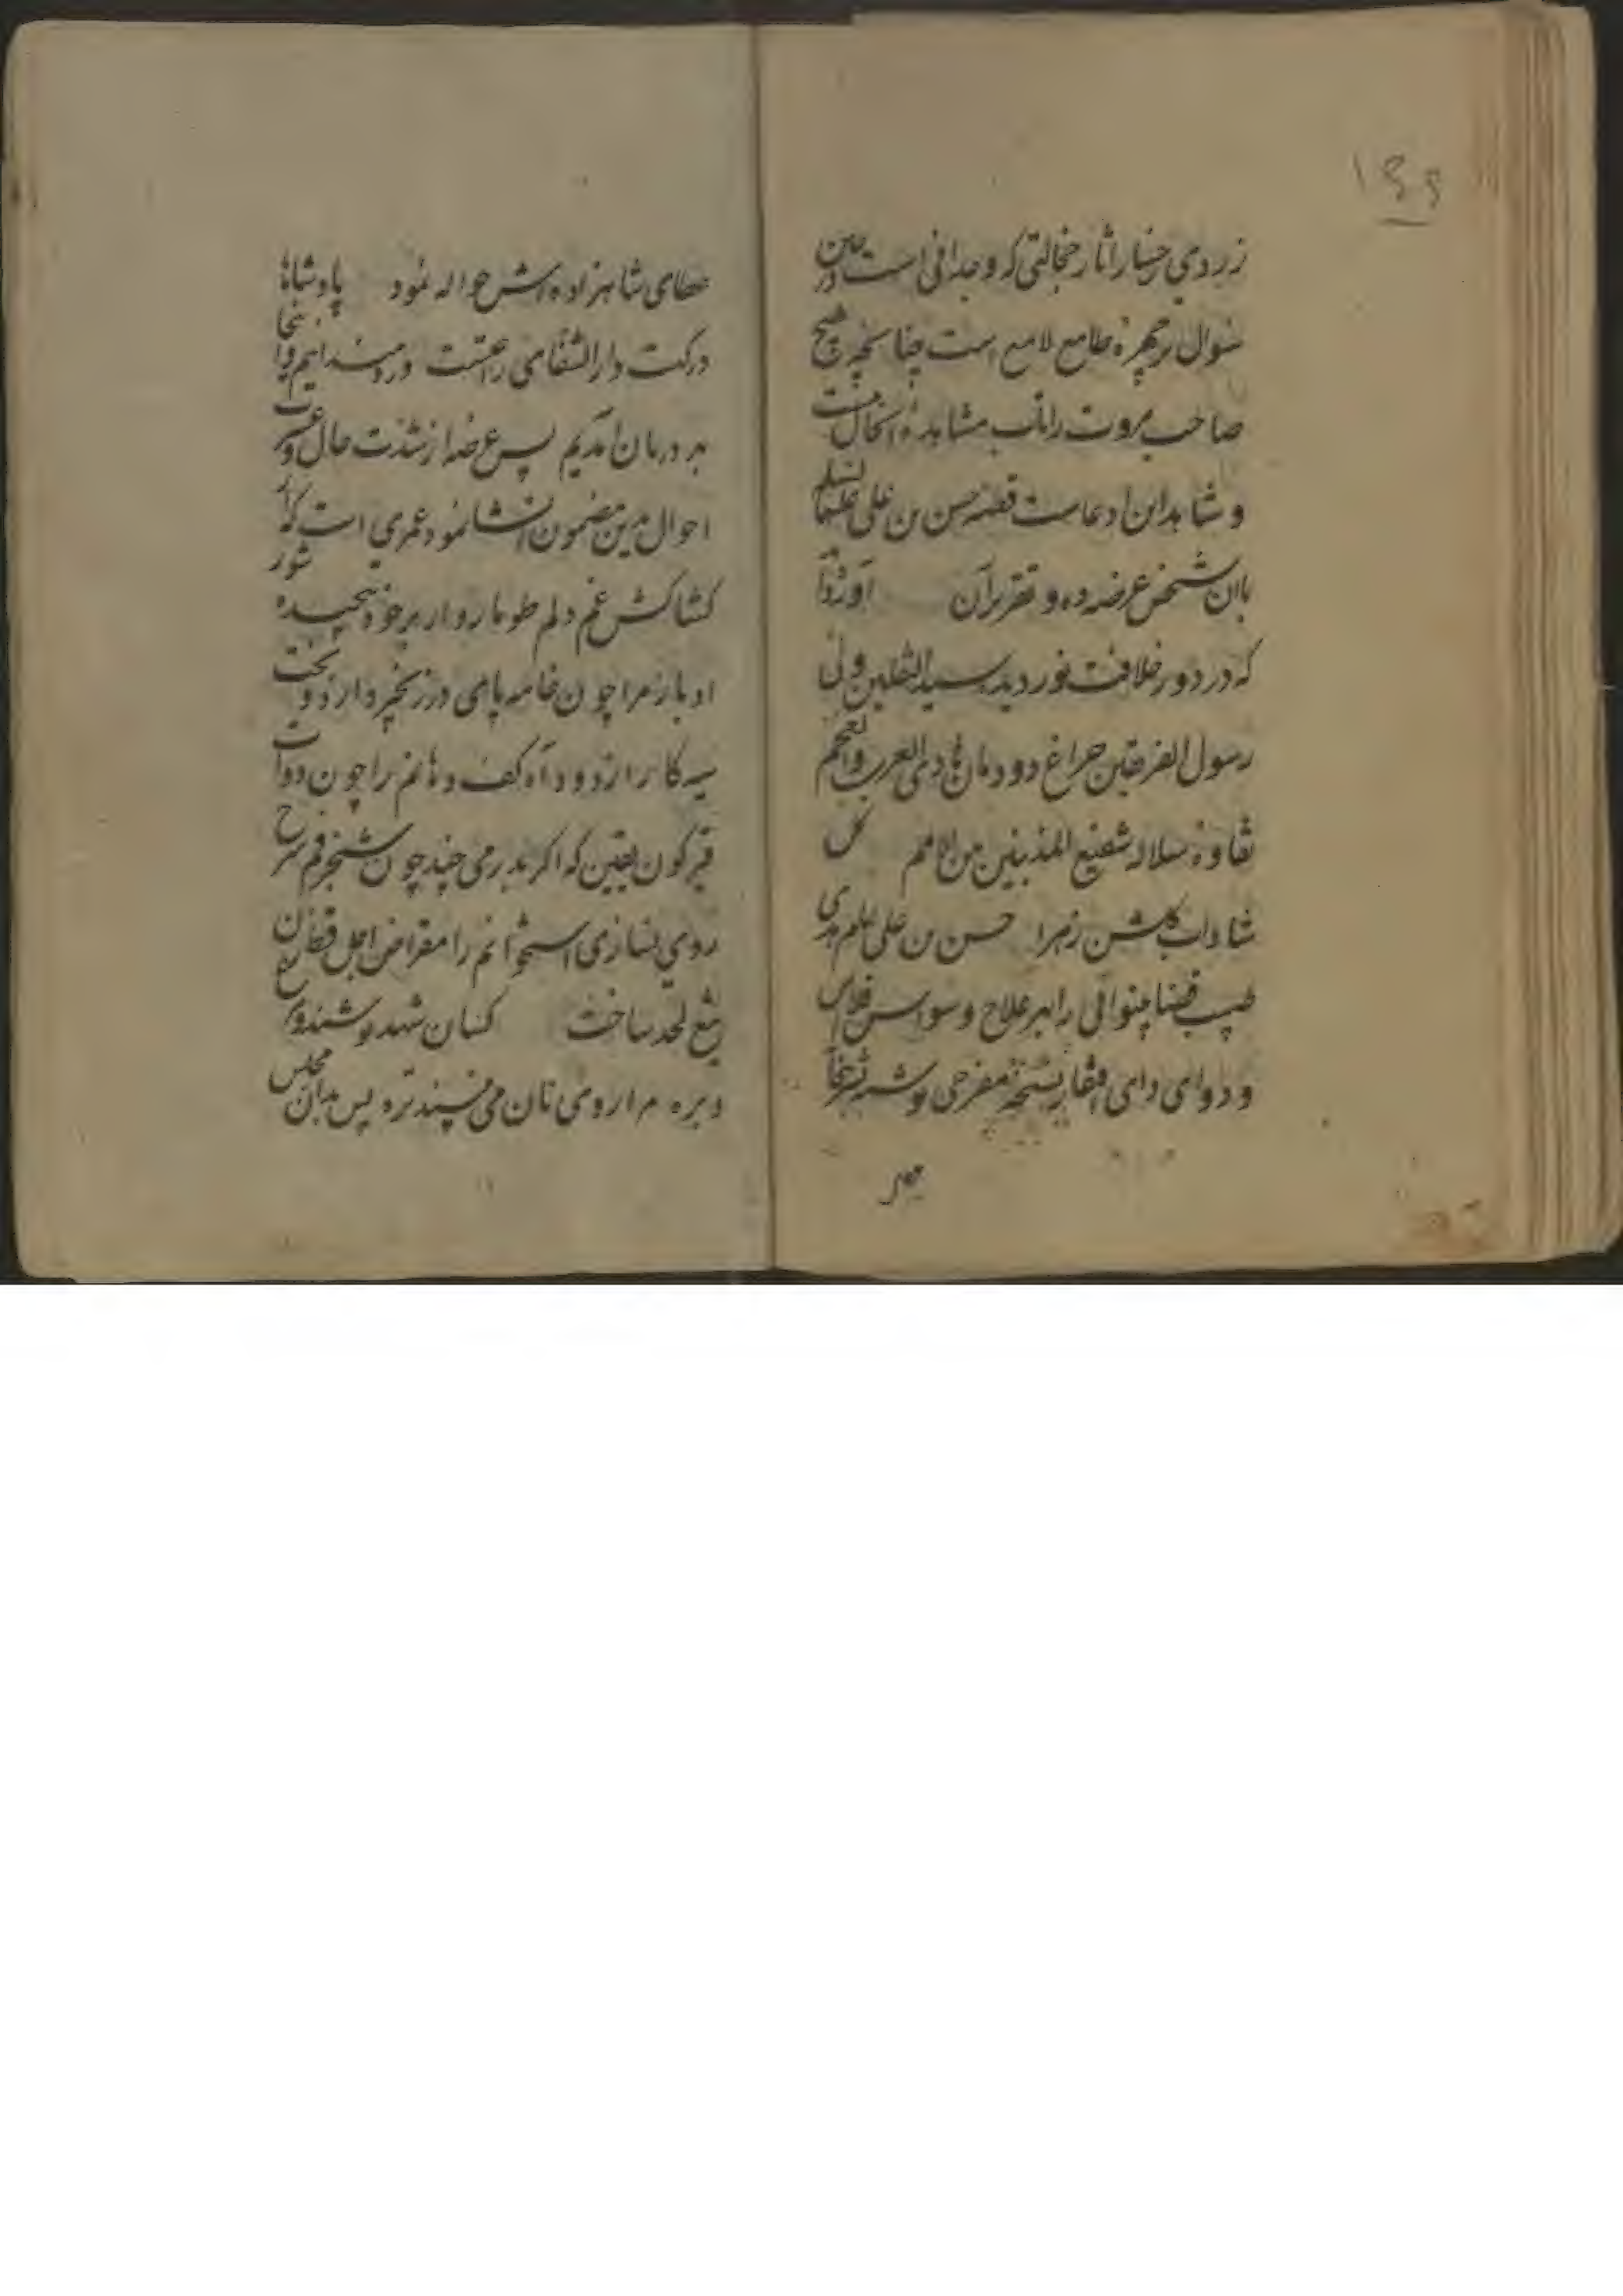 ۱۴۴
زردی رخسار آثار خجالتی که وجدانی است در حین
سوال بر چهره طامع لامع است چنانچه هیچ
صاحب مروت را تاب مشاهده آن حال نیست
و شاهد این ادعاست قصه حسن بن علی علیهما السلم
با آن شخص عرضه ده و تقریر آن آورده‌اند
که در دور خلافت نور دیده سید الثقلین ولی
رسول الفریقین چراغ دودمان هادی العرب والعجم
نقاوه سلاله شفیع المذنبین من الامم گل
شاداب گلشن زهرا حسن بن علی علم هدی
طبیب قضا بینوائی را بهر علاج وسواس فلاس
و دوای دای افتقار نسخه مفرحی نوشته
عطای شاهزاده‌اش حواله نمود پادشاها
درگهت دار الشفای راحتست دردمندایم و اینجا
بهر درمان آمدیم پس عرضه از شدت حال و عسرت
احوال بدین مضمون انشا نمود عمری است که از
کشاکش غم دلم طوماروار بر خود پیچیده شور
ادبار مرا چون خامه پای در زنجیر دارد و بخت
سیه کار از دود آه کف دهانم را چون دوات
قیرگون یقین که اگر بدرمی چند چون شنجرفم سرخ
روی نسازی استخوانم را مقراض اجل قط زن
تیغ لحد ساخت کسان شهد نوشند و مرغ
و بره مرا روی نان می‌نبیند تره پس بدان مجلس